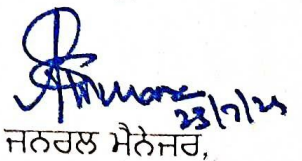 23/7/25
ਜਨਰਲ ਮੈਨੇਜਰ,